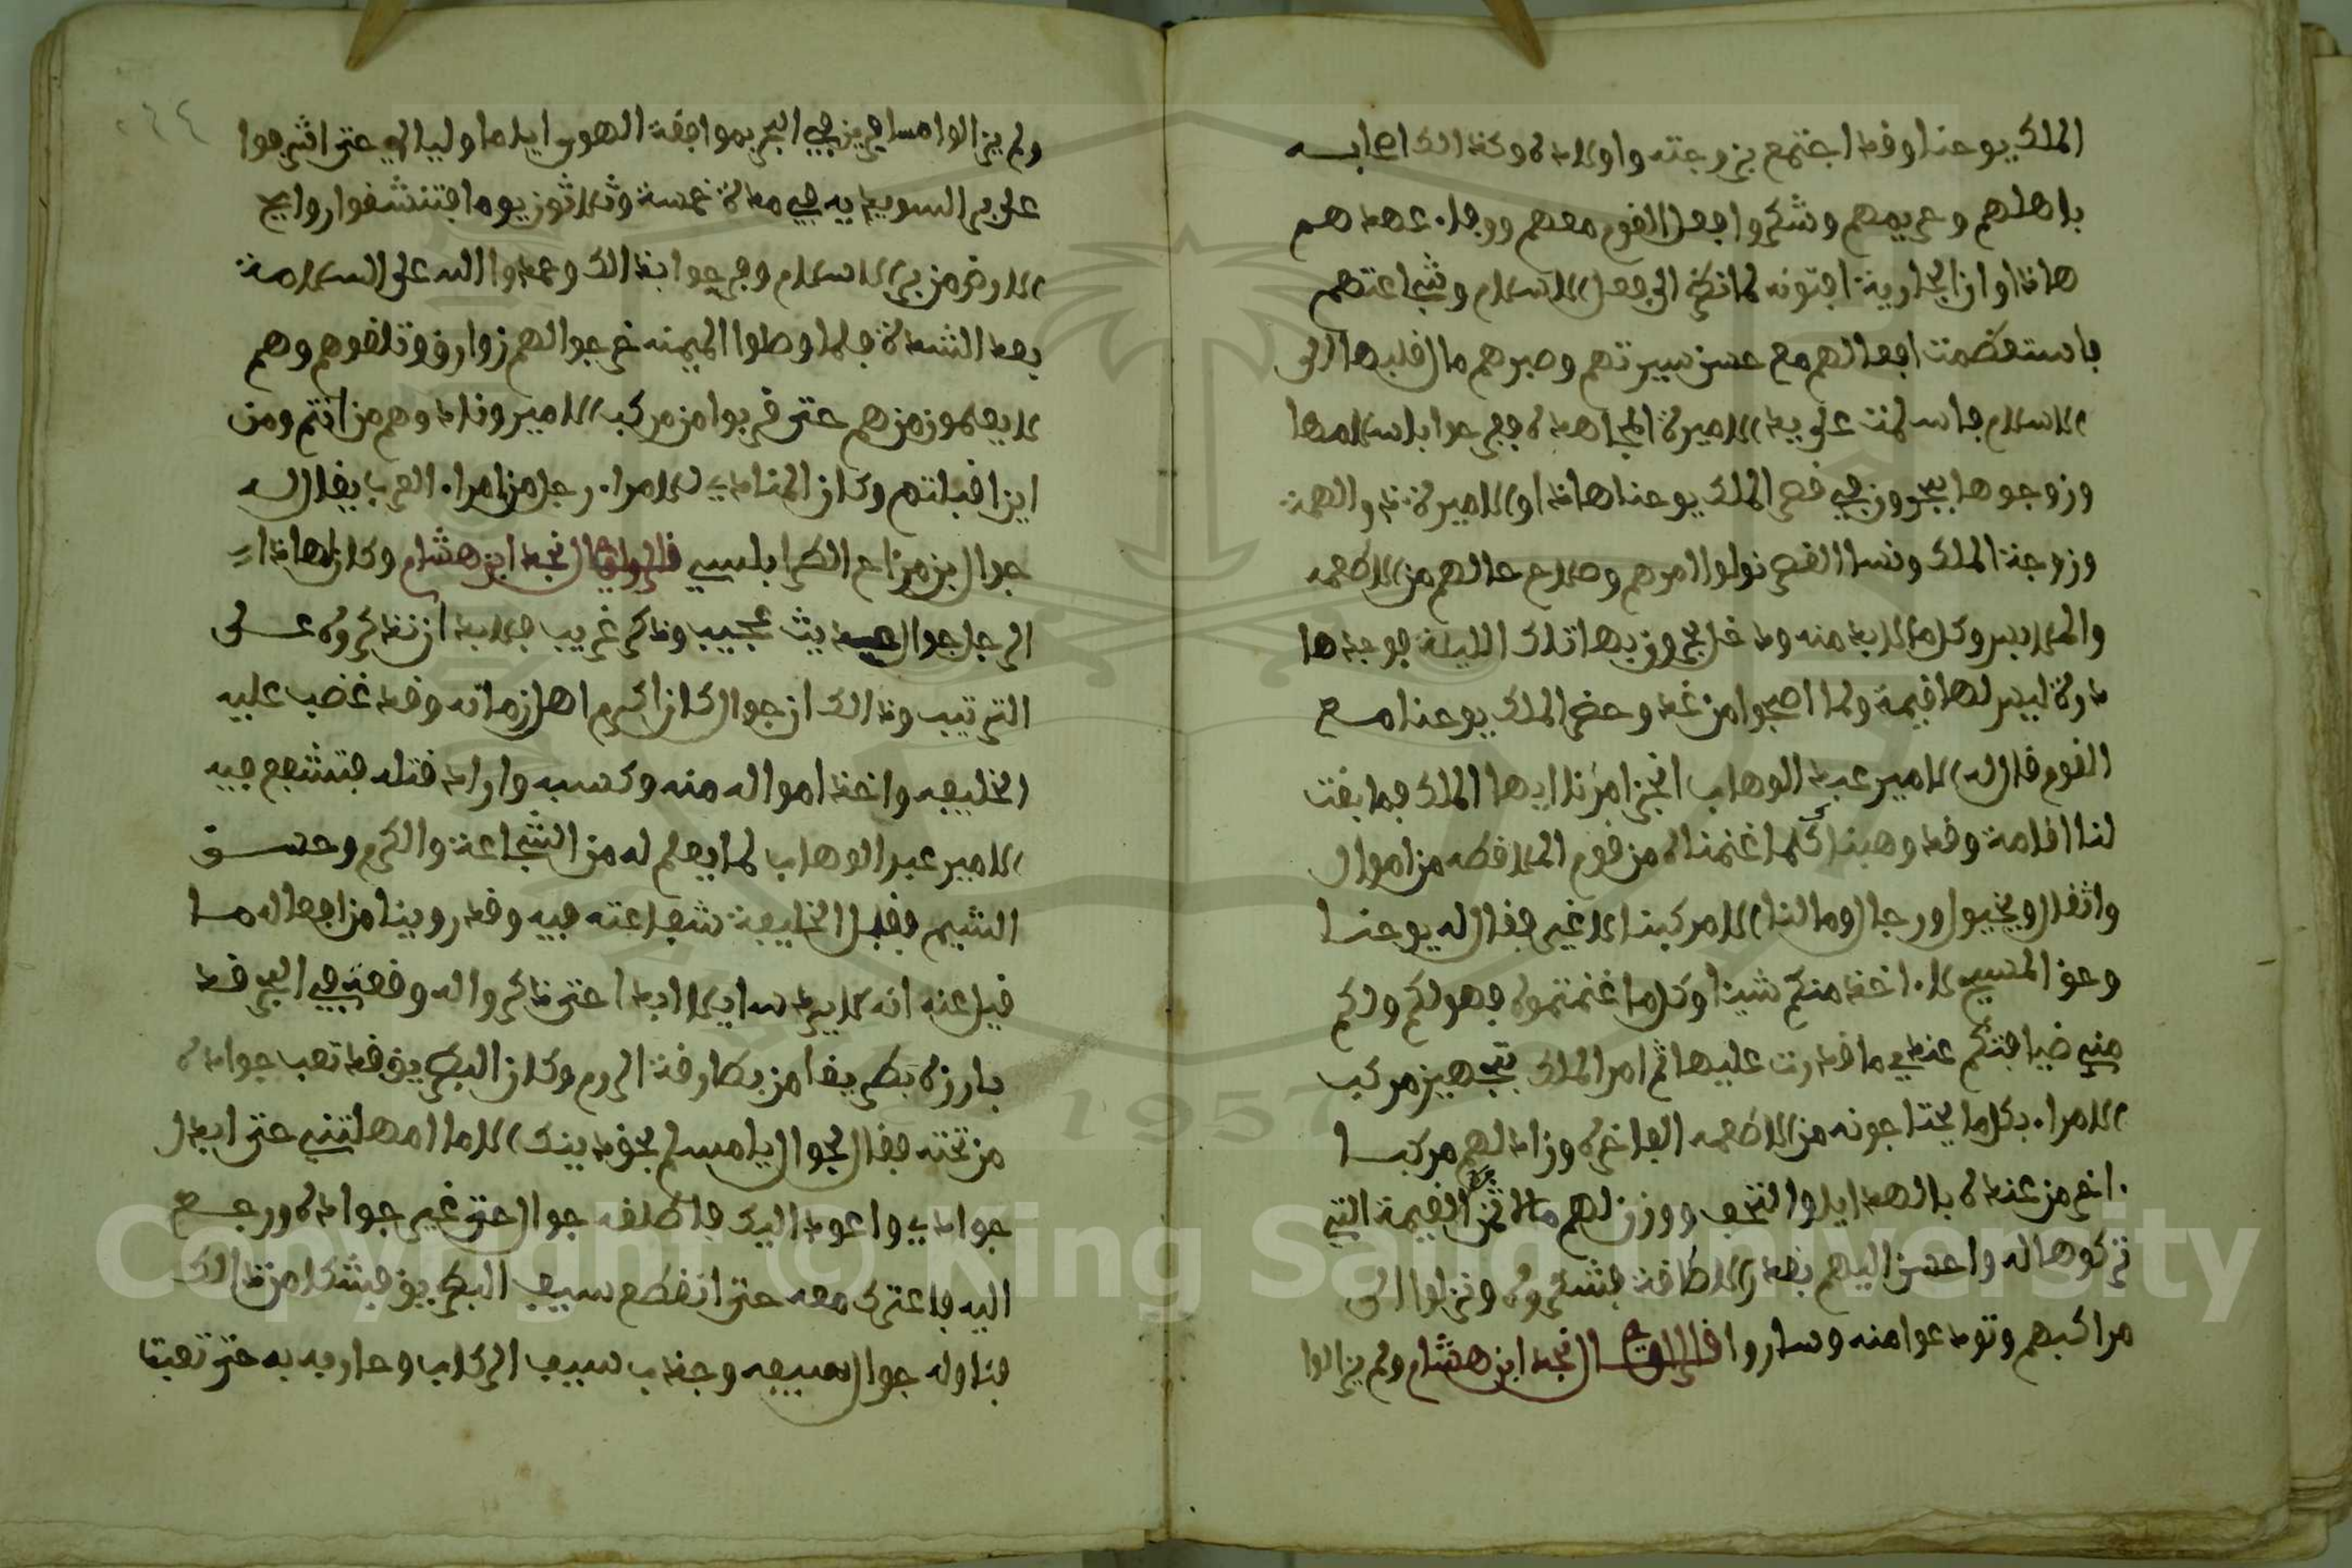 الملك يوحنا وقد اجتمع بزوجته واولاده وكذالك اصحابه
باهلهم وحريمهم وشكروا فعل القوم معهم ووفاء عهدهم
هاذا وان الجارية افتونه لما نظرت الى فعل الاسلام وشجاعتهم
فاستعظمت افعالهم مع حسن سيرتهم وصبرهم مال قلبها الى
الاسلام فاسلمت على يد الاميرة المجاهدة ففرحوا باسلامها
وزوجوها ببحرون في قصر الملك يوحنا هاذا والاميرة ذو الهمة
وزوجة الملك ونسا القصر تولوا امرهم وصلاح حالهم من الاطعمه
والملابس وكل ما لابد منه ودخل بحرون بها تلك الليلة فوجدها
درة ليس لها قيمة ولما اصبحوا من غد وحضر الملك يوحنا مع
القوم قال له الامير عبد الوهاب انجز امرنا ايها الملك فما بقت
لنا اقامة وقد وهبناك كلما غنمناه من قوم الملافطه من اموال
واثقال وخيول ورجال وما لنا الا مركبنا لا غير فقال له يوحنا
وحق المسيح لا اخذ منكم شيئا وكل ما غنمتموه فهو لكم ولكم
مني ضيافتكم عندي ما قدرت عليها ثم امر الملك بتجهيز مركب
الامراء بكل ما يحتاجونه من الاطعمه الفاخره وزاد لهم مركبا
اخر من عنده بالهدايا والتحف ووزن لهم مال ثمن القيمة التي
تركوها له واحسن اليهم بقدر الاطاقة فشكروه ونزلوا الى
مراكبهم وتودعوا منه وساروا قال الراوي نجد ابن هشام ولم يزالوا
ولم يزالوا مسافرين في البحر بموافقة الهوى اياما وليالي حتى اشرفوا
على بر السويدية في مدة خمسة وثلاثون يوما فتنشقوا روايح
الارض من بر الاسلام وفرحوا بذالك وحمدوا الله على السلامة
بعد الشدة فلما وصلوا الى المينه خرجوا لهم زوارق وتلقوهم وهم
لا يعلمون من هم حتى قربوا من مركب الامير ونادوهم من انتم ومن
اين اقبلتم وكان المنادي للامراء رجل من امراء العرب يقال له
جوال بن مزاح الكرابلسي قال الراوي نجد ابن هشام وكان لهاذا
الرجل جوال حديث عجيب وذكر غريب فلا بد ان نذكروه على
الترتيب وذالك ان جوال كان اكرم اهل زمانه وقد غضب عليه
الخليفه واخذ امواله منه وكسبه واراد قتله فتشفع فيه
الامير عبد الوهاب لما يعلم له من الشجاعة والكرم وحسن
الشيم فقبل الخليفة شفاعته فيه وقد روينا من افعاله ما
قيل عنه انه لا يرد سايلا ابدا حتى ذكروا له وقعة في البحر قد
بارزه بطريقا من بطارقة الروم وكان البطريق قد تعب جواده
من تحته فقال لجوال يا مسلم بحق دينك الا ما امهلتني حتى ابدل
جوادي واعود اليك فاطلقه جوال حتى غير جواده ورجع
اليه فاعترك معه حتى انقطع سيف البطريق فشكا من ذالك
فناوله جوال سيفه وجذب سيف الركاب وحاربه به حتى تعبا